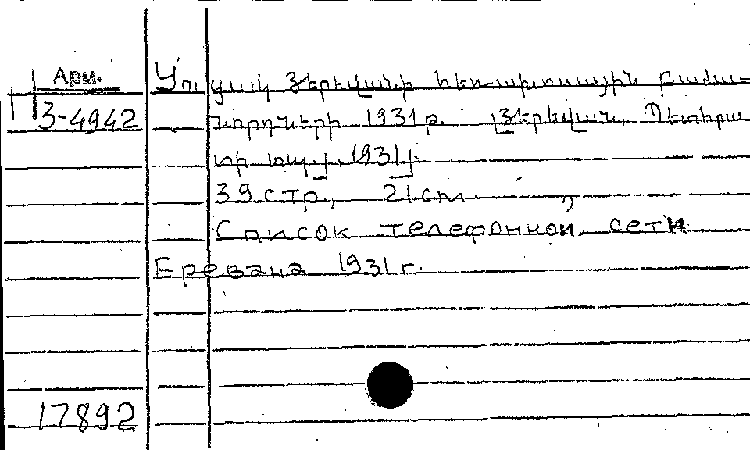 Арм.
Ցու ցակ Յերևանի հեռախոսային բաժա-
3-4942
նորդների 1931 թ. [Յերևան, Պետհրա
տի տպ., 1931].
39 стр., 21 cm.
Список телефонной сети
Еревана 1931 г.
17892